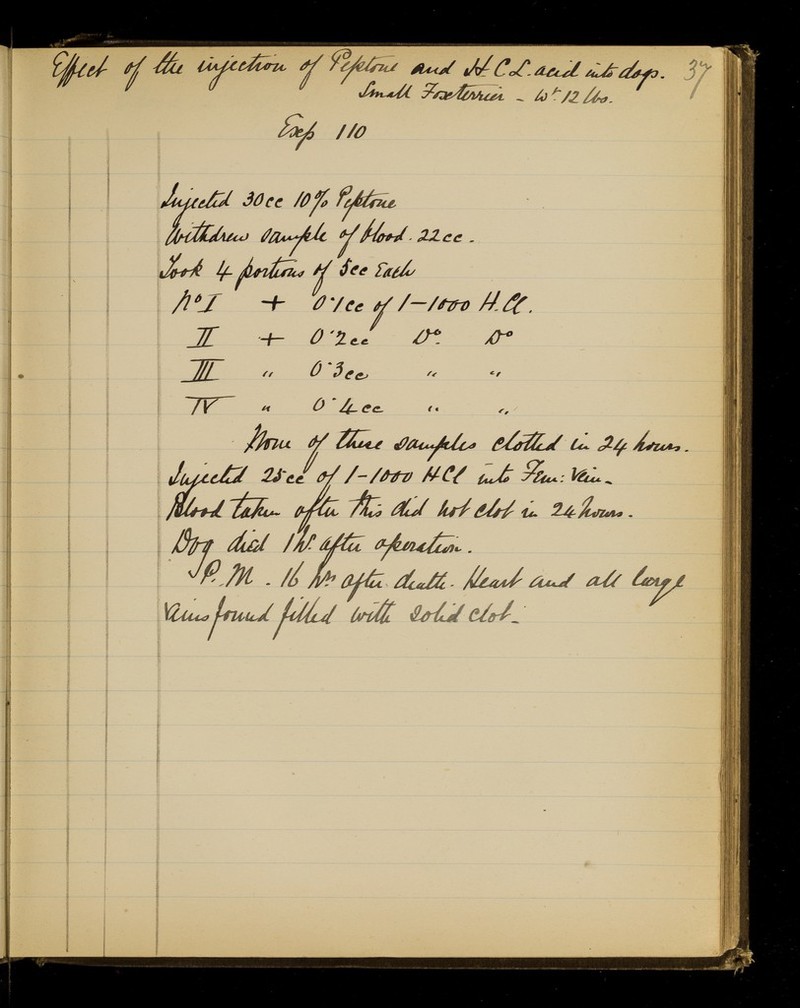 Effect of the injection of Peptone and H.C.L. acid into dogs. 37
Small Foxterrier - Wt. 12 lbs.
Exp 110
Injected 30cc 10% Peptone
Withdrew sample of blood. 22cc.
Took 4 portions of 5cc Each
No I + 0.1cc of 1-1000 H.Cl.
II + 0.2cc Do. Do
III " 0.3cc " "
IV " 0.4cc " "
None of these samples clotted in 24 hours.
Injected 25cc of 1-1000 HCl into Fem: Vein.
Blood taken after this did not clot in 24 hours.
Dog died 1 hr. after operation.
P.M. 16 hrs after death. Heart and all large
Vains found filled with solid clot.